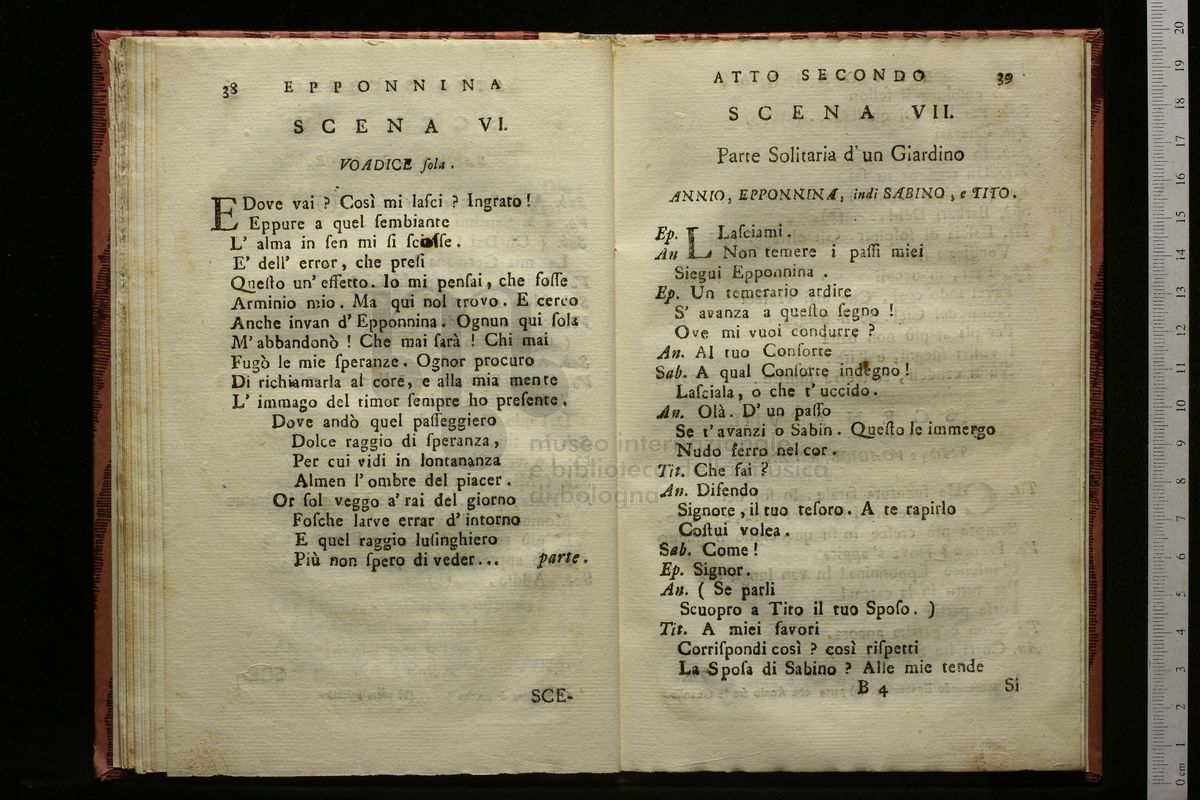 38 EPPONNINA
SCENA VI.
VOADICE ſola.
E Dove vai ? Così mi laſci ? Ingrato !
Eppure a quel ſembiante
L' alma in ſen mi ſi ſcioſſe.
E' dell' error, che preſi
Queſto un' effetto. Io mi penſai, che foſſe
Arminio mio. Ma qui nol trovo. E cerco
Anche invan d' Epponnina. Ognun qui ſola
M' abbandonò ! Che mai ſarà ! Chi mai
Fugò le mie ſperanze. Ognor procuro
Di richiamarla al core, e alla mia mente
L' immago del timor ſempre ho preſente.
Dove andò quel paſſeggiero
Dolce raggio di ſperanza,
Per cui vidi in lontananza
Almen l' ombre del piacer.
Or ſol veggo a' rai del giorno
Foſche larve errar d' intorno
E quel raggio luſinghiero
Più non ſpero di veder... parte.
SCE-
ATTO SECONDO 39
SCENA VII.
Parte Solitaria d' un Giardino
ANNIO, EPPONNINA, indi SABINO, e TITO.
Ep. Laſciami.
An Non temere i paſſi miei
Siegui Epponnina.
Ep. Un temerario ardire
S' avanza a queſto ſegno !
Ove mi vuoi condurre ?
An. Al tuo Conſorte
Sab. A qual Conſorte indegno !
Laſciala, o che t' uccido.
An. Olà. D' un paſſo
Se t' avanzi o Sabin. Queſto le immergo
Nudo ferro nel cor.
Tit. Che fai ?
An. Difendo
Signore, il tuo teſoro. A te rapirlo
Coſtui volea.
Sab. Come !
Ep. Signor.
An. ( Se parli
Scuopro a Tito il tuo Spoſo. )
Tit. A miei favori
Corriſpondi così ? così riſpetti
La Spoſa di Sabino ? Alle mie tende
B 4 Si
museo internazionale
e biblioteca della musica
di bologna
0 cm 1 2 3 4 5 6 7 8 9 10 11 12 13 14 15 16 17 18 19 20